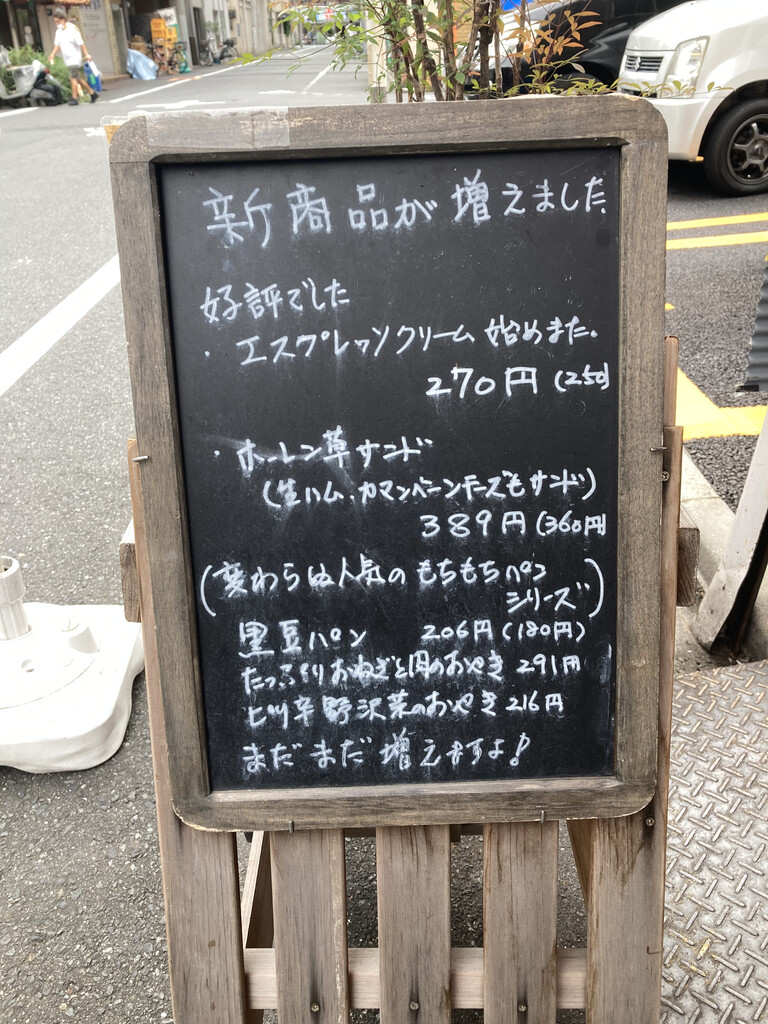 新商品が増えました
好評でした
・エスプレッソクリーム始めました.
270円(250)
・ホーレン草サンド
(生ハム.カマンベーンチーズもサンド)
389円(360円)
(変わらぬ人気のもちもちパン
シリーズ)
黒豆パン 206円(180円)
たっぷりおねぎと肉のおやき 291円
ピリ辛野沢菜のおやき 216円
まだまだ増えますよ!